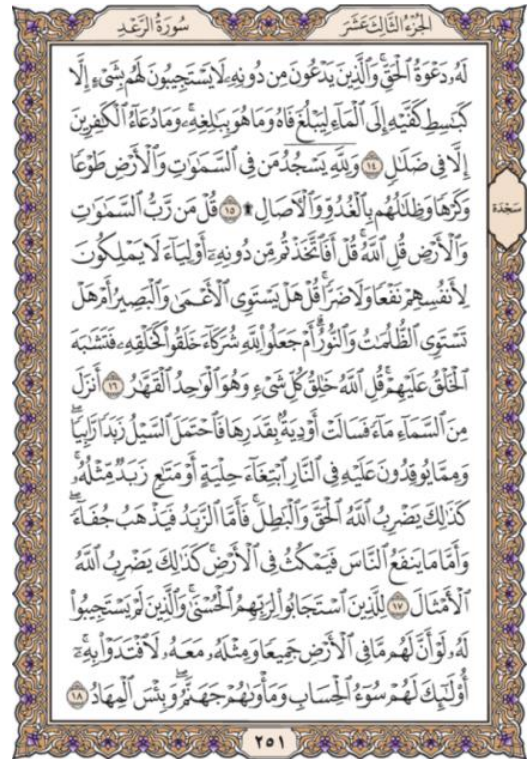 سُورَةُ الرَّعْدِ
الجُزْءُ الثَّالِثَ عَشَرَ
لَهُۥ دَعْوَةُ ٱلْحَقِّ ۖ وَٱلَّذِينَ يَدْعُونَ مِن دُونِهِۦ لَا يَسْتَجِيبُونَ لَهُم بِشَىْءٍ إِلَّا
كَبَـٰسِطِ كَفَّيْهِ إِلَى ٱلْمَآءِ لِيَبْلُغَ فَاهُ وَمَا هُوَ بِبَـٰلِغِهِۦ ۚ وَمَا دُعَآءُ ٱلْكَـٰفِرِينَ
إِلَّا فِى ضَلَـٰلٍ ١٤ وَلِلَّهِ يَسْجُدُ مَن فِى ٱلسَّمَـٰوَٰتِ وَٱلْأَرْضِ طَوْعًا
وَكَرْهًا وَظِلَـٰلُهُم بِٱلْغُدُوِّ وَٱلْـَٔاصَالِ ۩ ١٥ قُلْ مَن رَّبُّ ٱلسَّمَـٰوَٰتِ
سَجْدَة
وَٱلْأَرْضِ قُلِ ٱللَّهُ ۚ قُلْ أَفَٱتَّخَذْتُم مِّن دُونِهِۦٓ أَوْلِيَآءَ لَا يَمْلِكُونَ
لِأَنفُسِهِمْ نَفْعًا وَلَا ضَرًّا ۚ قُلْ هَلْ يَسْتَوِى ٱلْأَعْمَىٰ وَٱلْبَصِيرُ أَمْ هَلْ
تَسْتَوِى ٱلظُّلُمَـٰتُ وَٱلنُّورُ ۗ أَمْ جَعَلُوا۟ لِلَّهِ شُرَكَآءَ خَلَقُوا۟ كَخَلْقِهِۦ فَتَشَـٰبَهَ
ٱلْخَلْقُ عَلَيْهِمْ ۚ قُلِ ٱللَّهُ خَـٰلِقُ كُلِّ شَىْءٍ وَهُوَ ٱلْوَٰحِدُ ٱلْقَهَّـٰرُ ١٦ أَنزَلَ
مِنَ ٱلسَّمَآءِ مَآءً فَسَالَتْ أَوْدِيَةٌۢ بِقَدَرِهَا فَٱحْتَمَلَ ٱلسَّيْلُ زَبَدًا رَّابِيًا ۚ
وَمِمَّا يُوقِدُونَ عَلَيْهِ فِى ٱلنَّارِ ٱبْتِغَآءَ حِلْيَةٍ أَوْ مَتَـٰعٍ زَبَدٌ مِّثْلُهُۥ ۚ
كَذَٰلِكَ يَضْرِبُ ٱللَّهُ ٱلْحَقَّ وَٱلْبَـٰطِلَ ۚ فَأَمَّا ٱلزَّبَدُ فَيَذْهَبُ جُفَآءً ۖ
وَأَمَّا مَا يَنفَعُ ٱلنَّاسَ فَيَمْكُثُ فِى ٱلْأَرْضِ ۚ كَذَٰلِكَ يَضْرِبُ ٱللَّهُ
ٱلْأَمْثَالَ ١٧ لِلَّذِينَ ٱسْتَجَابُوا۟ لِرَبِّهِمُ ٱلْحُسْنَىٰ ۚ وَٱلَّذِينَ لَمْ يَسْتَجِيبُوا۟
لَهُۥ لَوْ أَنَّ لَهُم مَّا فِى ٱلْأَرْضِ جَمِيعًا وَمِثْلَهُۥ مَعَهُۥ لَٱفْتَدَوْا۟ بِهِۦٓ ۚ
أُو۟لَـٰٓئِكَ لَهُمْ سُوٓءُ ٱلْحِسَابِ وَمَأْوَىٰهُمْ جَهَنَّمُ ۖ وَبِئْسَ ٱلْمِهَادُ ١٨
٢٥١